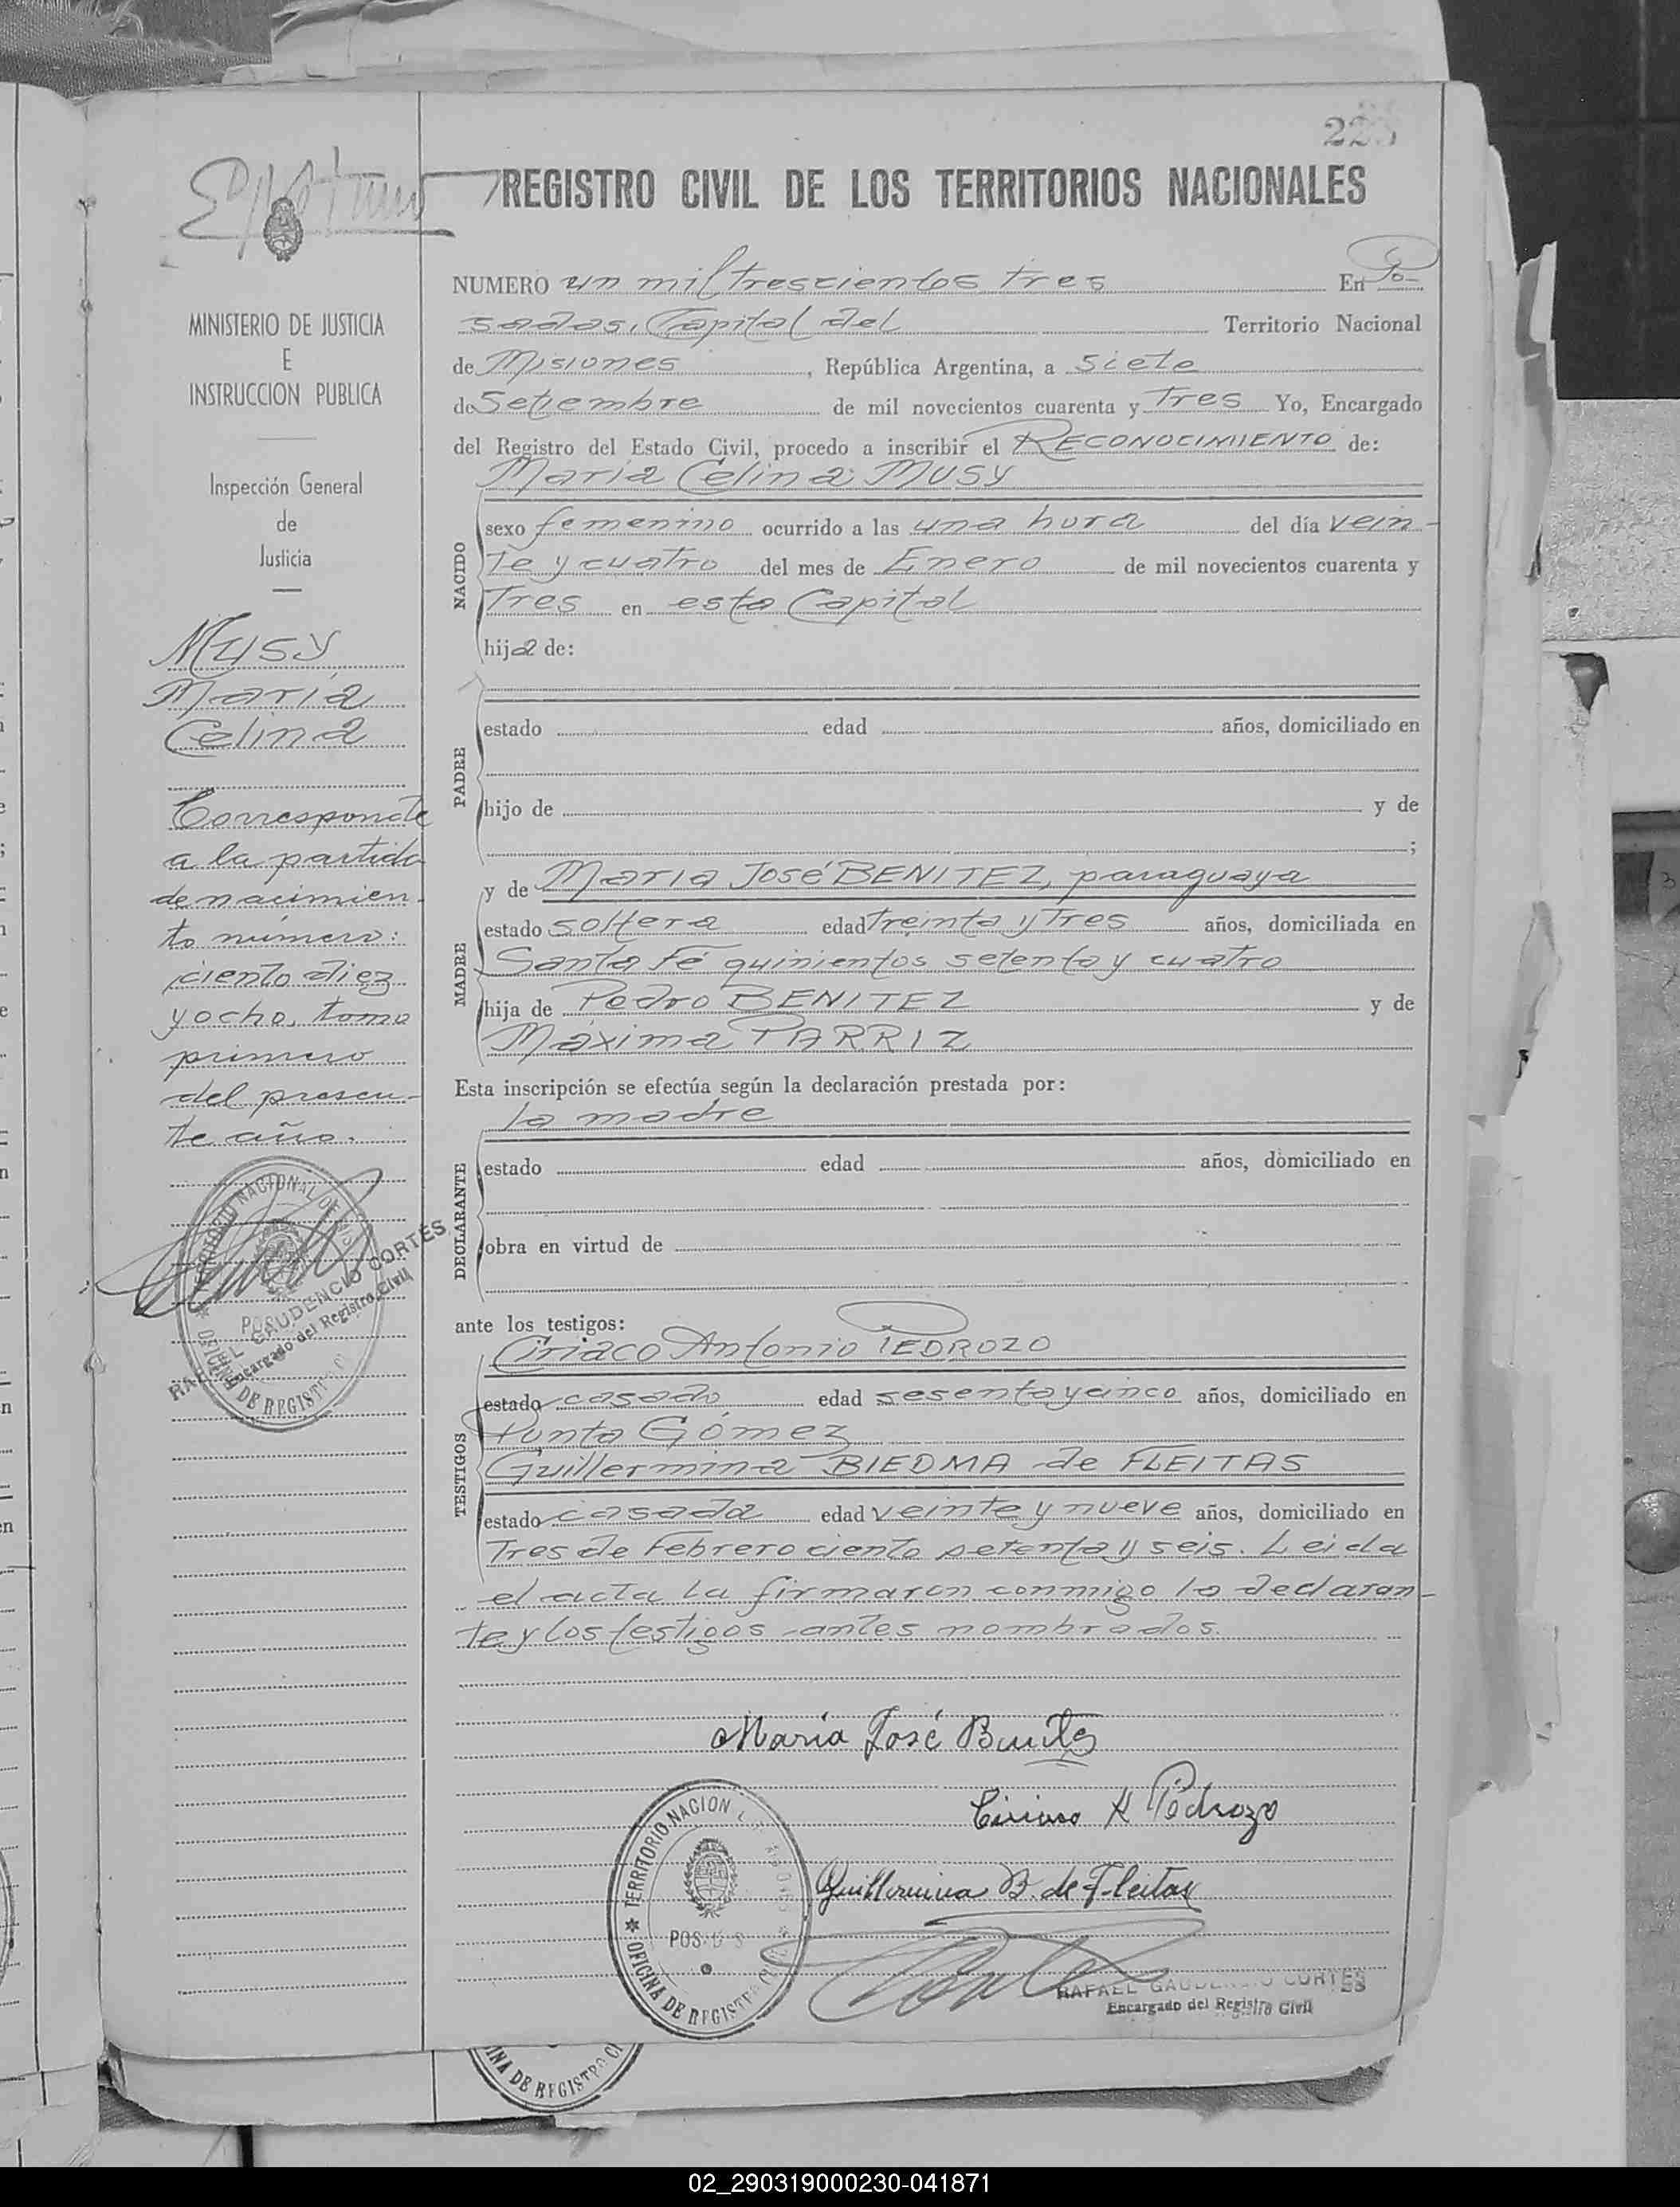 REGISTRO CIVIL DE LOS TERRITORIOS NACIONALES
MINISTERIO DE JUSTICIA
E
INSTRUCCION PUBLICA
Inspección General
de
Justicia
MUSY
María
Celina
Corresponde
a la partida
de nacimien-
to número:
ciento diez
y ocho, tomo
primero
del presen-
te año.
RAFAEL GAUDENCIO CORTÉS
Encargado del Registro Civil
NUMERO un mil trescientos tres En Po-
sadas, Capital del Territorio Nacional
de Misiones, República Argentina, a siete
de Setiembre de mil novecientos cuarenta y Tres Yo, Encargado
del Registro del Estado Civil, procedo a inscribir el RECONOCIMIENTO de:
María Celina MUSY
NACIDO
sexo femenino ocurrido a las una hora del día vein-
te y cuatro del mes de Enero de mil novecientos cuarenta y
Tres en esta Capital
hija de:
PADRE
estado edad años, domiciliado en
hijo de y de
;
MADRE
y de María José BENITEZ, paraguaya
estado soltera edad treinta y tres años, domiciliada en
Santa Fé quinientos setenta y cuatro
hija de Pedro BENITEZ y de
Máxima PARRIZ
Esta inscripción se efectúa según la declaración prestada por:
la madre
DECLARANTE
estado edad años, domiciliado en
obra en virtud de
ante los testigos:
TESTIGOS
Ciriaco Antonio PEDROZO
estado casado edad sesenta y cinco años, domiciliado en
Punta Gómez
Guillermina BIEDMA de FLEITAS
estado casada edad veinte y nueve años, domiciliado en
Tres de Febrero ciento setenta y seis. Leida
el acta la firmaron conmigo la declaran-
te y los testigos antes nombrados.
María José Benitez
Ciriaco A Pedrozo
Guillermina B. de Fleitas
TERRITORIO NACIONAL
OFICINA DE REGISTRO
RAFAEL GAUDENCIO CORTÉS
Encargado del Registro Civil
INA DE REGISTRO CI
02_290319000230-041871